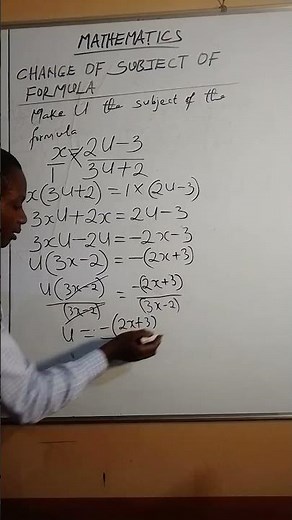 MATHEMATICS
CHANGE OF SUBJECT OF
FORMULA
Make U the subject of the
formula
x/1 = (2U-3)/(3U+2)
x(3U+2) = 1×(2U-3)
3xU+2x = 2U-3
3xU-2U = -2x-3
U(3x-2) = -(2x+3)
U(3x-2)/(3x-2) = -(2x+3)/(3x-2)
U = -(2x+3)